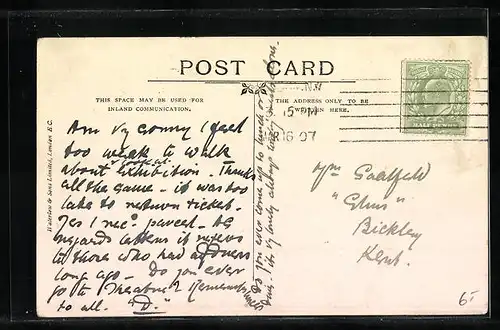 POST CARD
THIS SPACE MAY BE USED FOR
INLAND COMMUNICATION.
THE ADDRESS ONLY TO BE
WRITTEN HERE.
Waterlow & Sons Limited, London, E.C.
Am vy sorry I feel
too weak to walk
about Exhibition. Thanks
all the same - it was too
late to return ticket.
Yes I rec? parcel. As
regards letters it refers
to those who had
long ago. Do you ever
go to Theatres? Remembrances
to all. "D."
Do you ever come up to lunch or
tea? It's vy lonely always being alone.
Mrs Saalfeld
Bickley
Kent.
5 PM
16 07
6/-